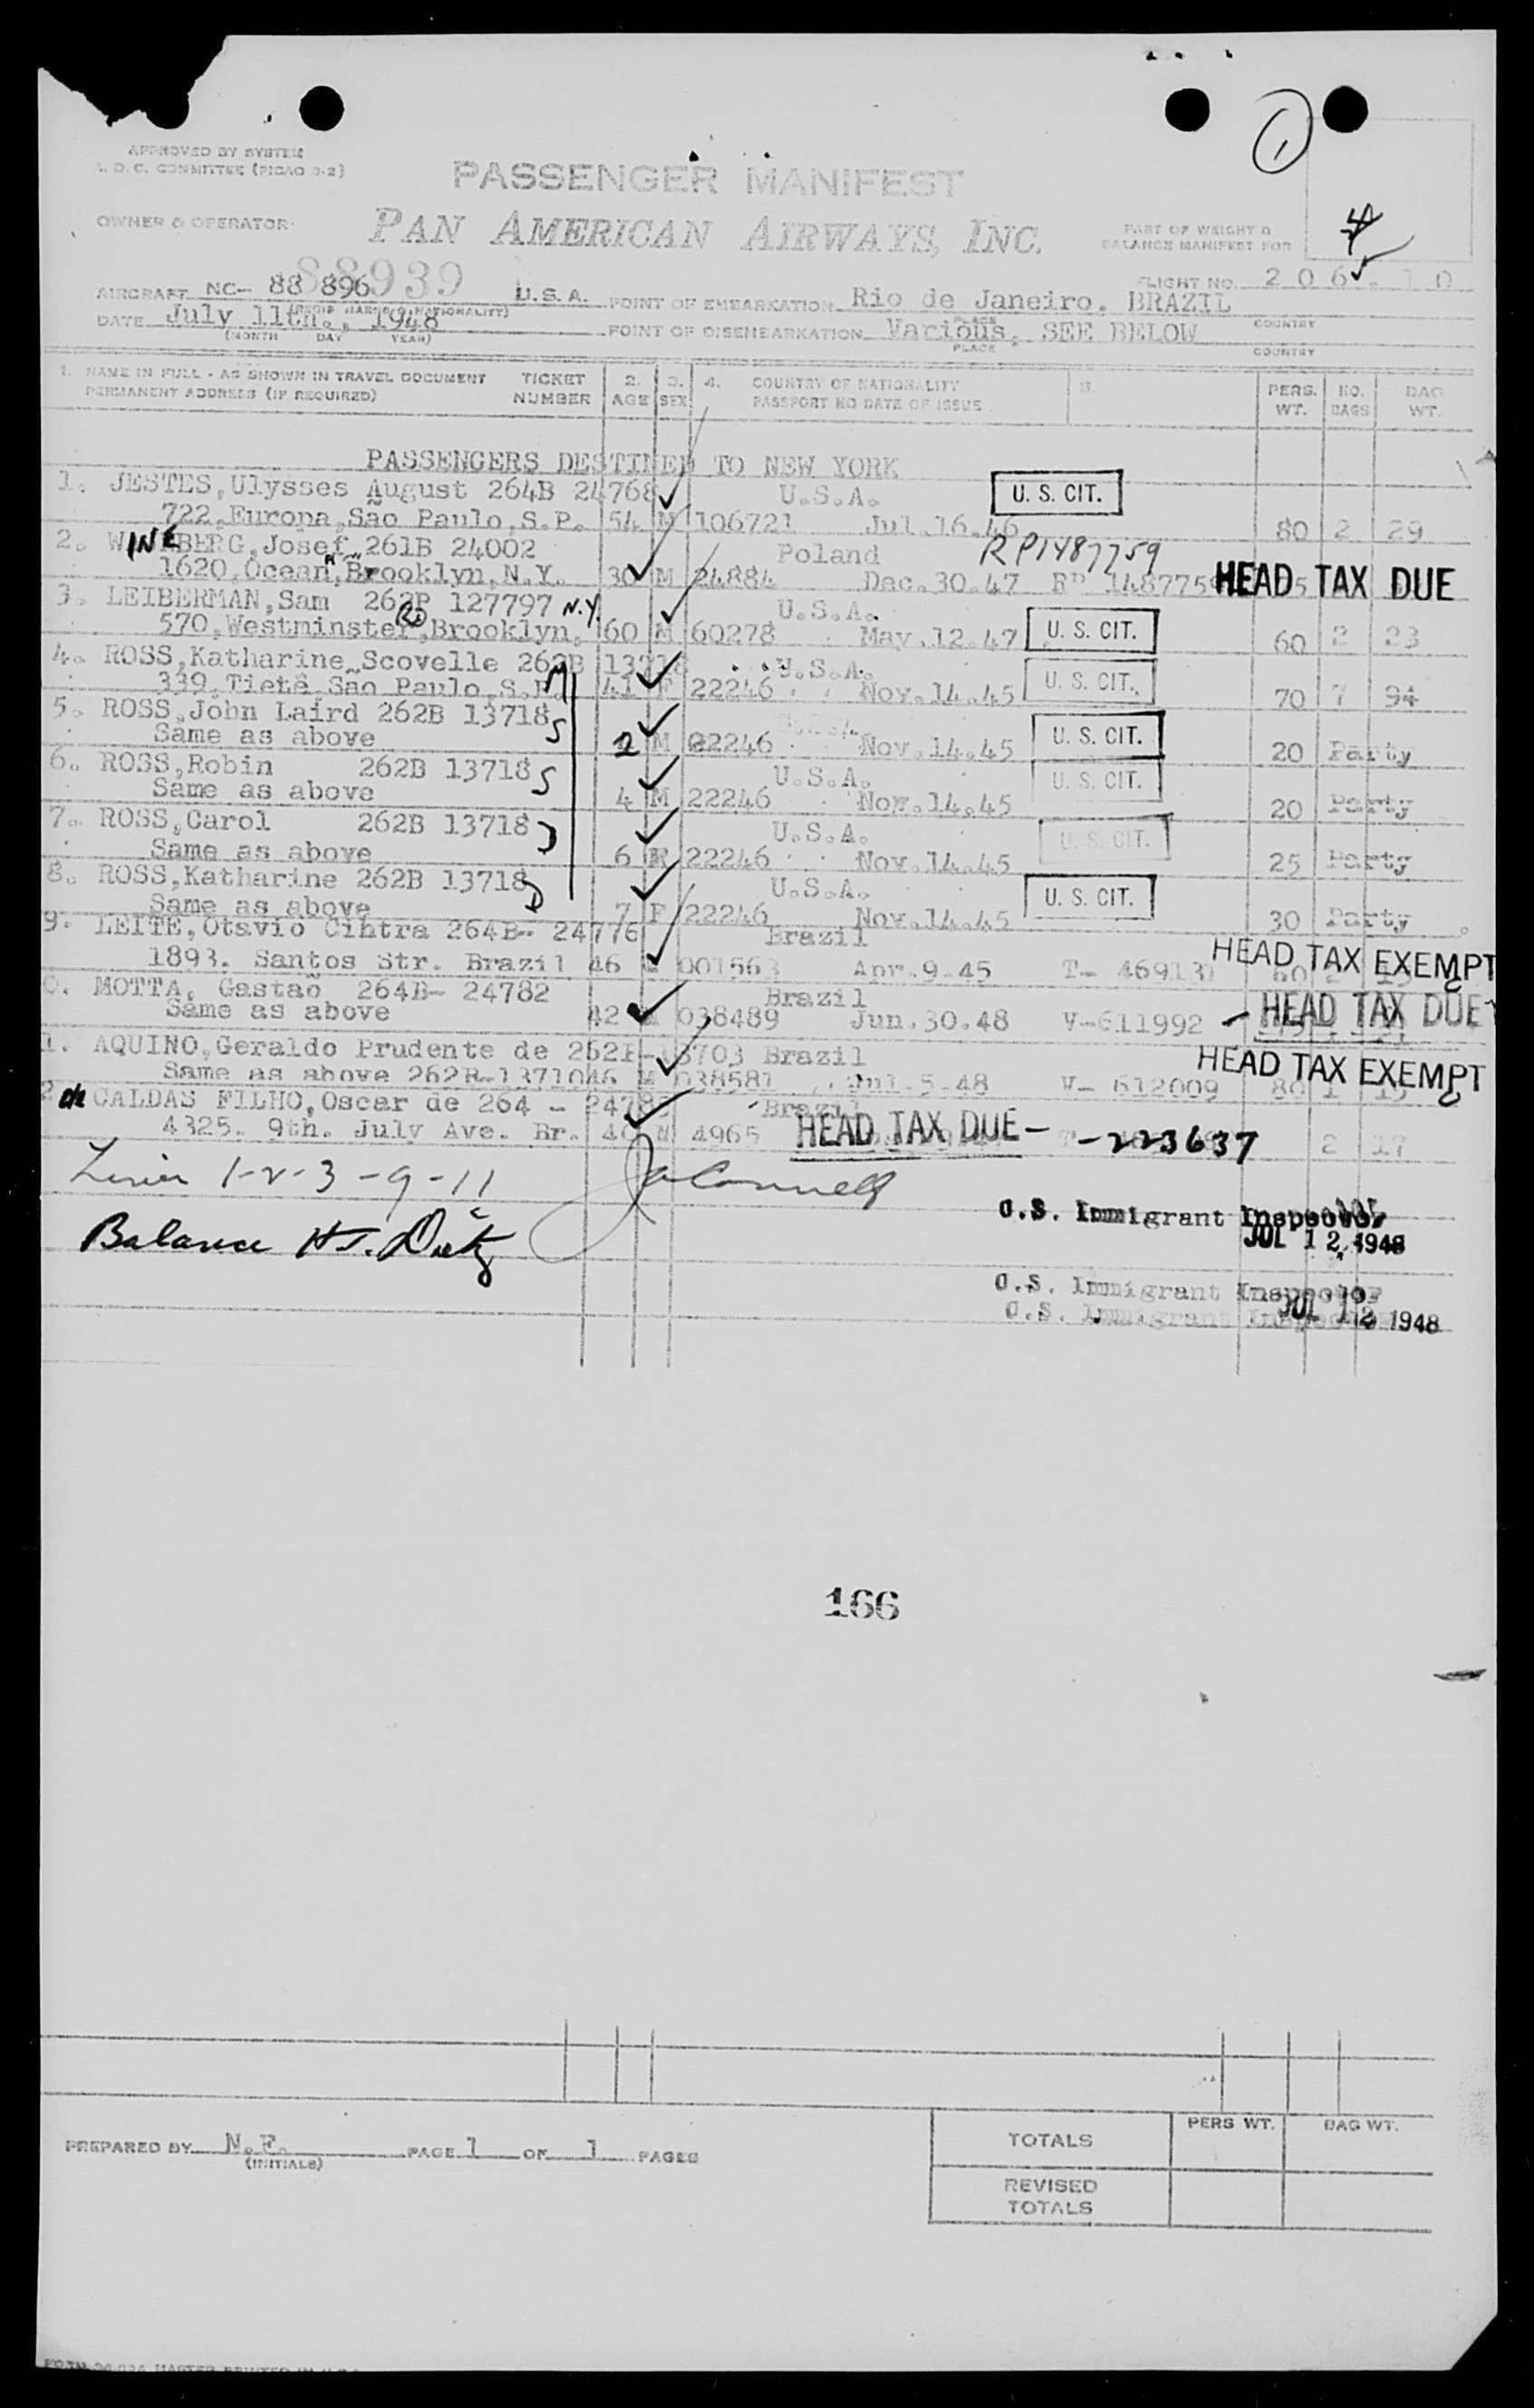 1
APPROVED BY SYSTEM
A. O. C. COMMITTEE (PICAO 9-2)
PASSENGER MANIFEST
OWNER & OPERATOR:
PAN AMERICAN AIRWAYS, INC.
PART OF WEIGHT &
BALANCE MANIFEST FOR
AIRCRAFT NC- 88 896 88939 U.S.A. POINT OF EMBARKATION Rio de Janeiro. BRAZIL
FLIGHT NO. 206
DATE July 11th., 1948 POINT OF DISEMBARKATION Various, SEE BELOW
(MONTH DAY YEAR) PLACE COUNTRY
1. NAME IN FULL - AS SHOWN IN TRAVEL DOCUMENT TICKET 2. 3. 4. COUNTRY OF NATIONALITY 5. PERS. NO. BAG
PERMANENT ADDRESS (IF REQUIRED) NUMBER AGE SEX PASSPORT NO DATE OF ISSUE WT. BAGS WT.
PASSENGERS DESTINED TO NEW YORK
1. JESTES, Ulysses August 264B 24768 U.S.A. U. S. CIT.
722, Europa, Sao Paulo, S.P. 54 M 106721 Jul.16.46 80 2 29
2. WINEBERG, Josef 261B 24002 Poland RP1487759
1620, Ocean, Brooklyn, N.Y. 30 M 24884 Dec.30.47 RP 1487759 HEAD TAX DUE
3. LEIBERMAN, Sam 262B 127797 N.Y. U.S.A.
570, Westminster, Brooklyn, 60 M 60278 May.12.47 U. S. CIT. 60 2 23
4. ROSS, Katharine Scovelle 262B 13718 U.S.A.
339, Tietê São Paulo, S.P. M 41 F 22246 Nov.14.45 U. S. CIT. 70 7 94
5. ROSS, John Laird 262B 13718 S
Same as above 2 M 22246 Nov.14.45 U. S. CIT. 20 Party
6. ROSS, Robin 262B 13718 S U.S.A.
Same as above 4 M 22246 Nov.14.45 U. S. CIT. 20 Party
7. ROSS, Carol 262B 13718 D U.S.A.
Same as above 6 F 22246 Nov.14.45 U. S. CIT. 25 Party
8. ROSS, Katharine 262B 13718 D U.S.A.
Same as above 7 F 22246 Nov.14.45 U. S. CIT. 30 Party
9. LEITE, Otavio Cintra 264B- 24776 Brazil
1893. Santos Str. Brazil 46 001563 Apr.9.45 T- 469131 HEAD TAX EXEMPT
0. MOTTA, Gastaõ 264B- 24782 Brazil
Same as above 42 038489 Jun.30.48 V-611992 - HEAD TAX DUE
1. AQUINO, Geraldo Prudente de 262B-13703 Brazil
Same as above 262B-13710 46 M 038581 Jul.5.48 V- 612009 80 1 15 HEAD TAX EXEMPT
2 de CALDAS FILHO, Oscar de 264 - 2478 Brazil
4325. 9th. July Ave. Br. 40 M 4965 HEAD TAX DUE - -223637 2 17
1-2-3-9-11
Balance
U.S. Immigrant Inspector
JUL 12 1948
U.S. Immigrant Inspector
U.S. Immigrant Inspector
JUL 12 1948
166
PREPARED BY N.F. PAGE 1 OF 1 PAGES
(INITIALS)
TOTALS PERS WT. BAG WT.
REVISED
TOTALS